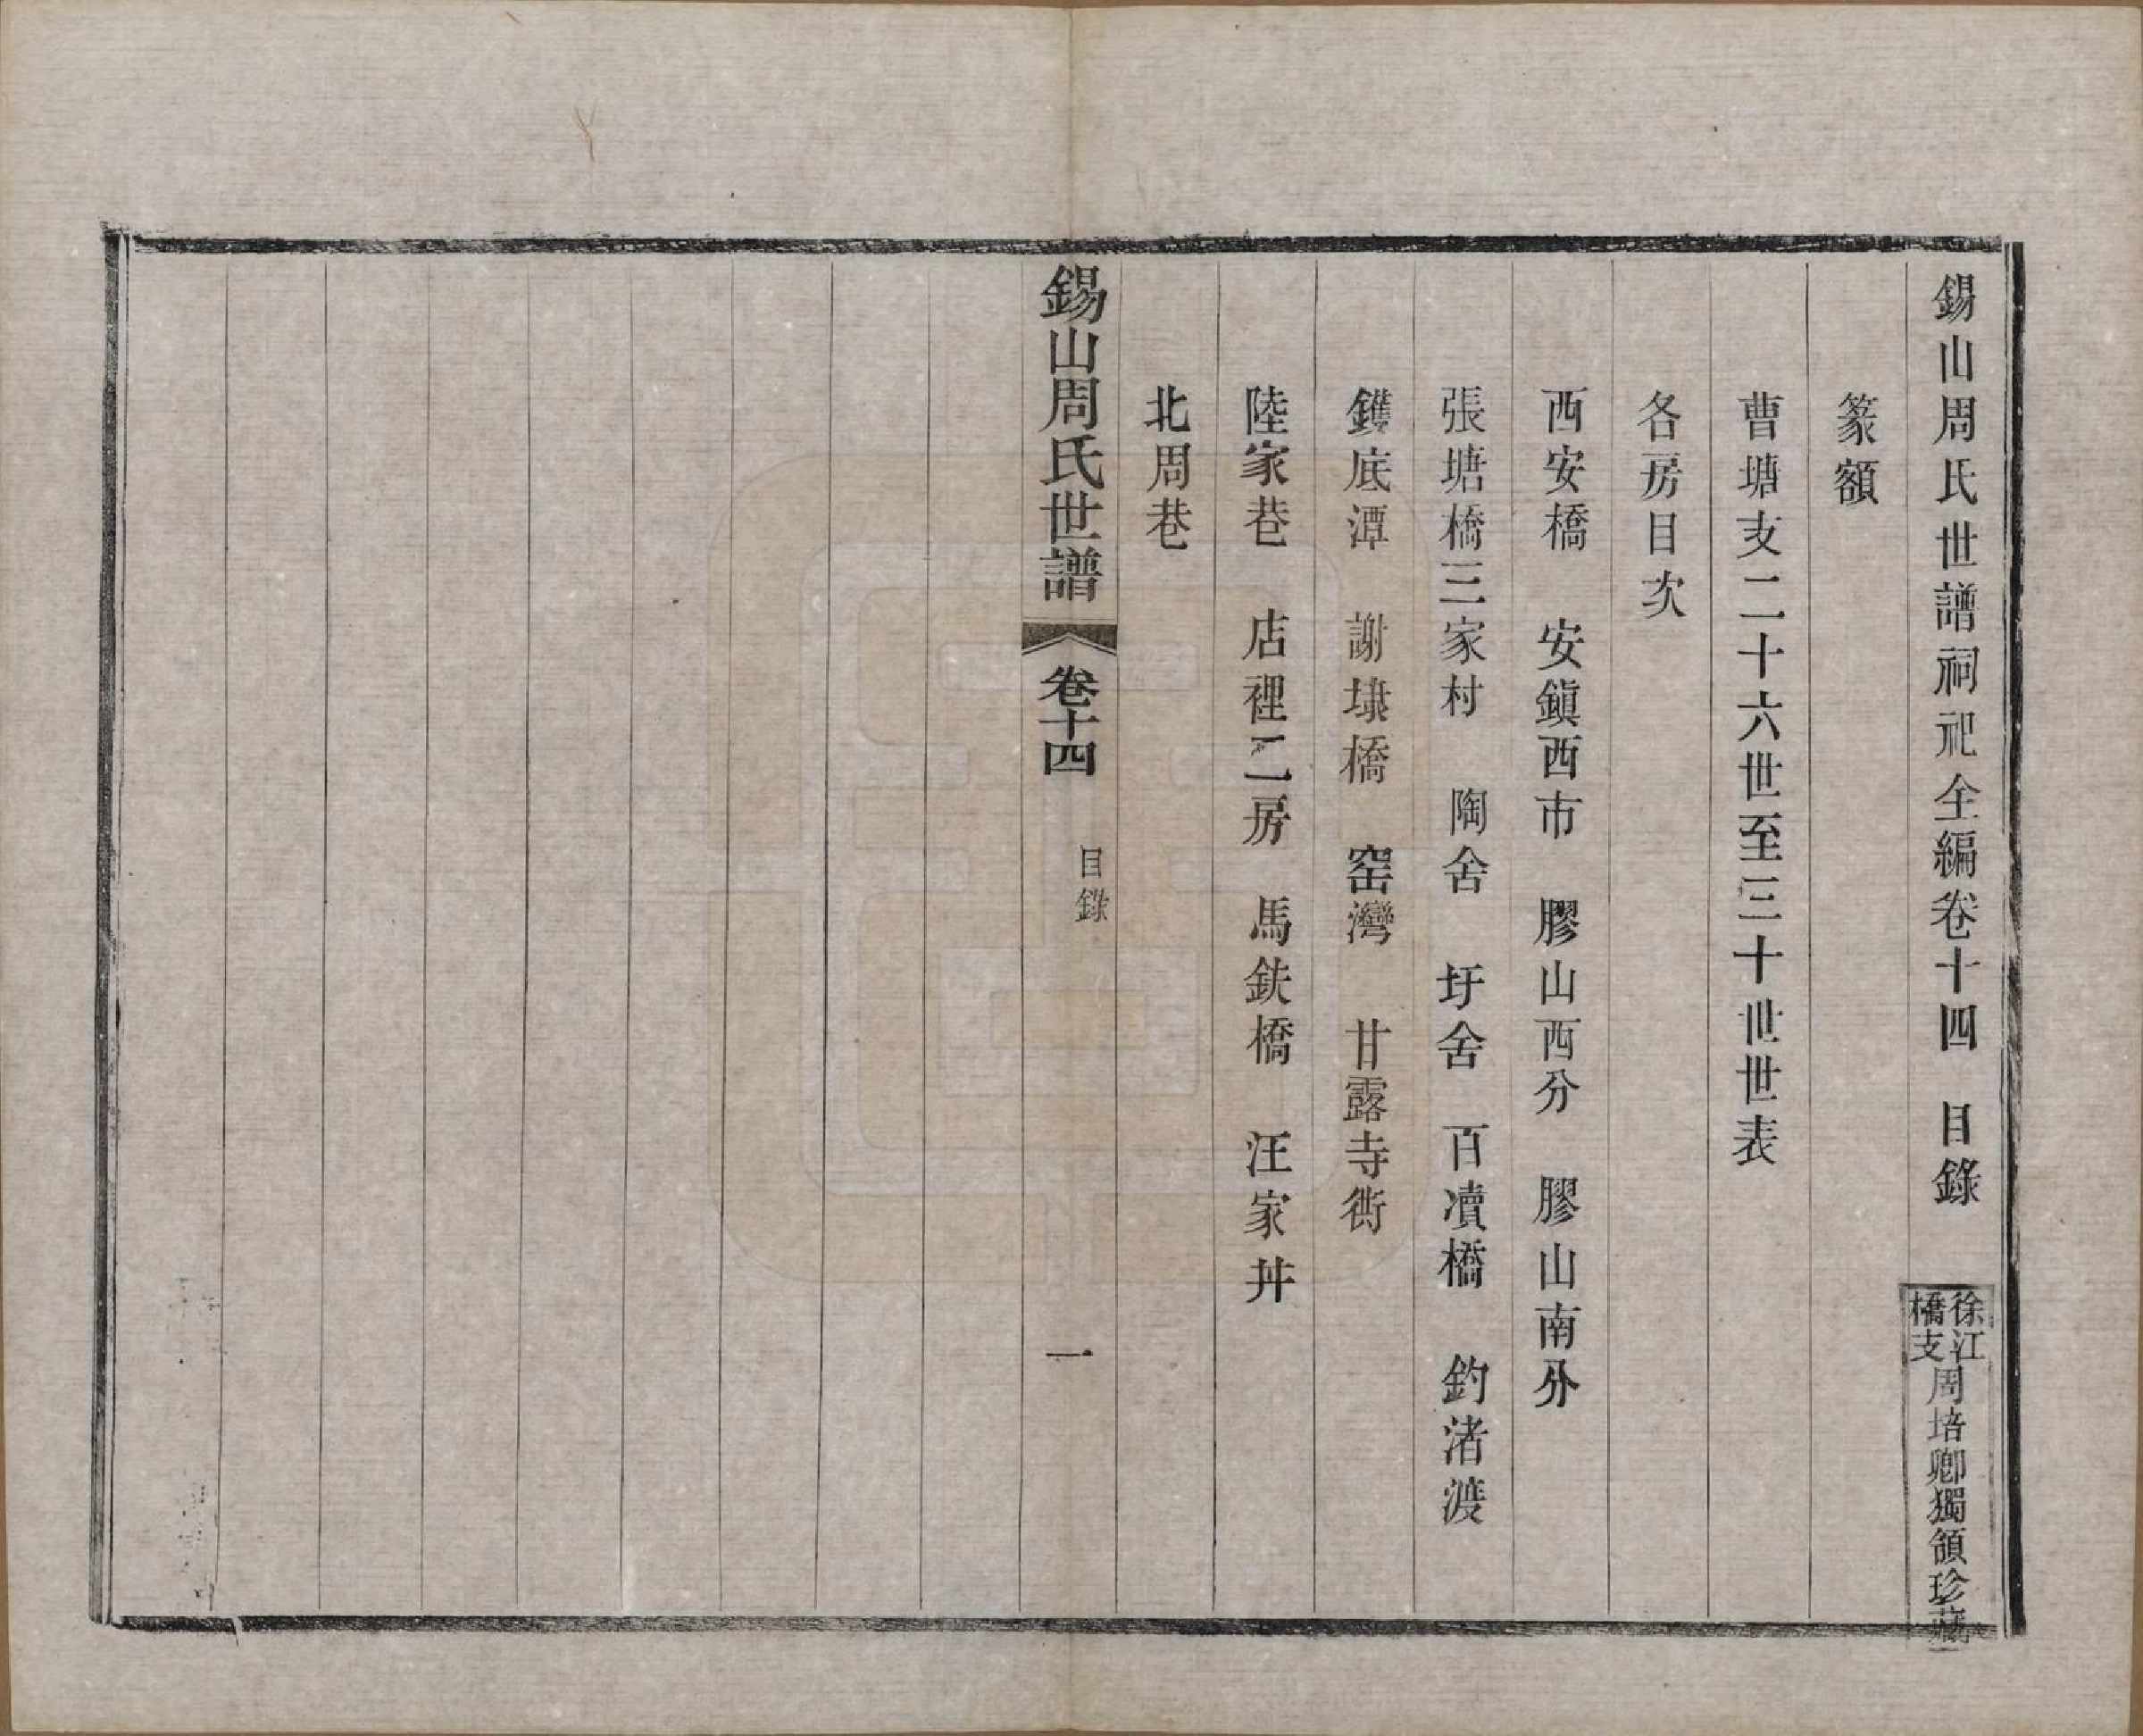 錫山周氏世譜祠祀全編卷十四　目錄
徐江橋支周培卿獨領珍藏
篆額
曹塘支二十六世至三十世世表
各房目次
西安橋　安鎭西市　膠山西分　膠山南分
張塘橋三家村　陶舍　圩舍　百瀆橋　釣渚渡
鑊底潭　謝埭橋　窑灣　甘露寺衖
陸家巷　店裡二房　馬鈇橋　汪家丼
北周巷
錫山周氏世譜　卷十四　目錄　一